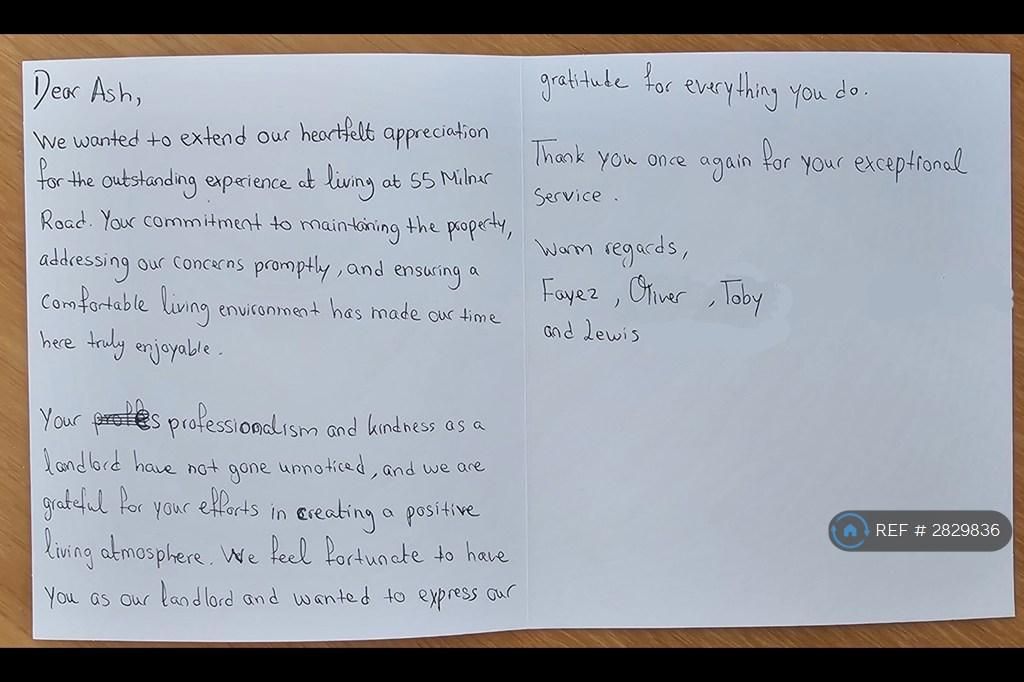 Dear Ash,
We wanted to extend our heartfelt appreciation
for the outstanding experience at living at 55 Milner
Road. Your commitment to maintaining the property,
addressing our concerns promptly, and ensuring a
comfortable living environment has made our time
here truly enjoyable.
Your professionalism and kindness as a
landlord have not gone unnoticed, and we are
grateful for your efforts in creating a positive
living atmosphere. We feel fortunate to have
you as our landlord and wanted to express our
gratitude for everything you do.
Thank you once again for your exceptional
service.
Warm regards,
Fayez, Oliver, Toby
and Lewis
REF # 2829836